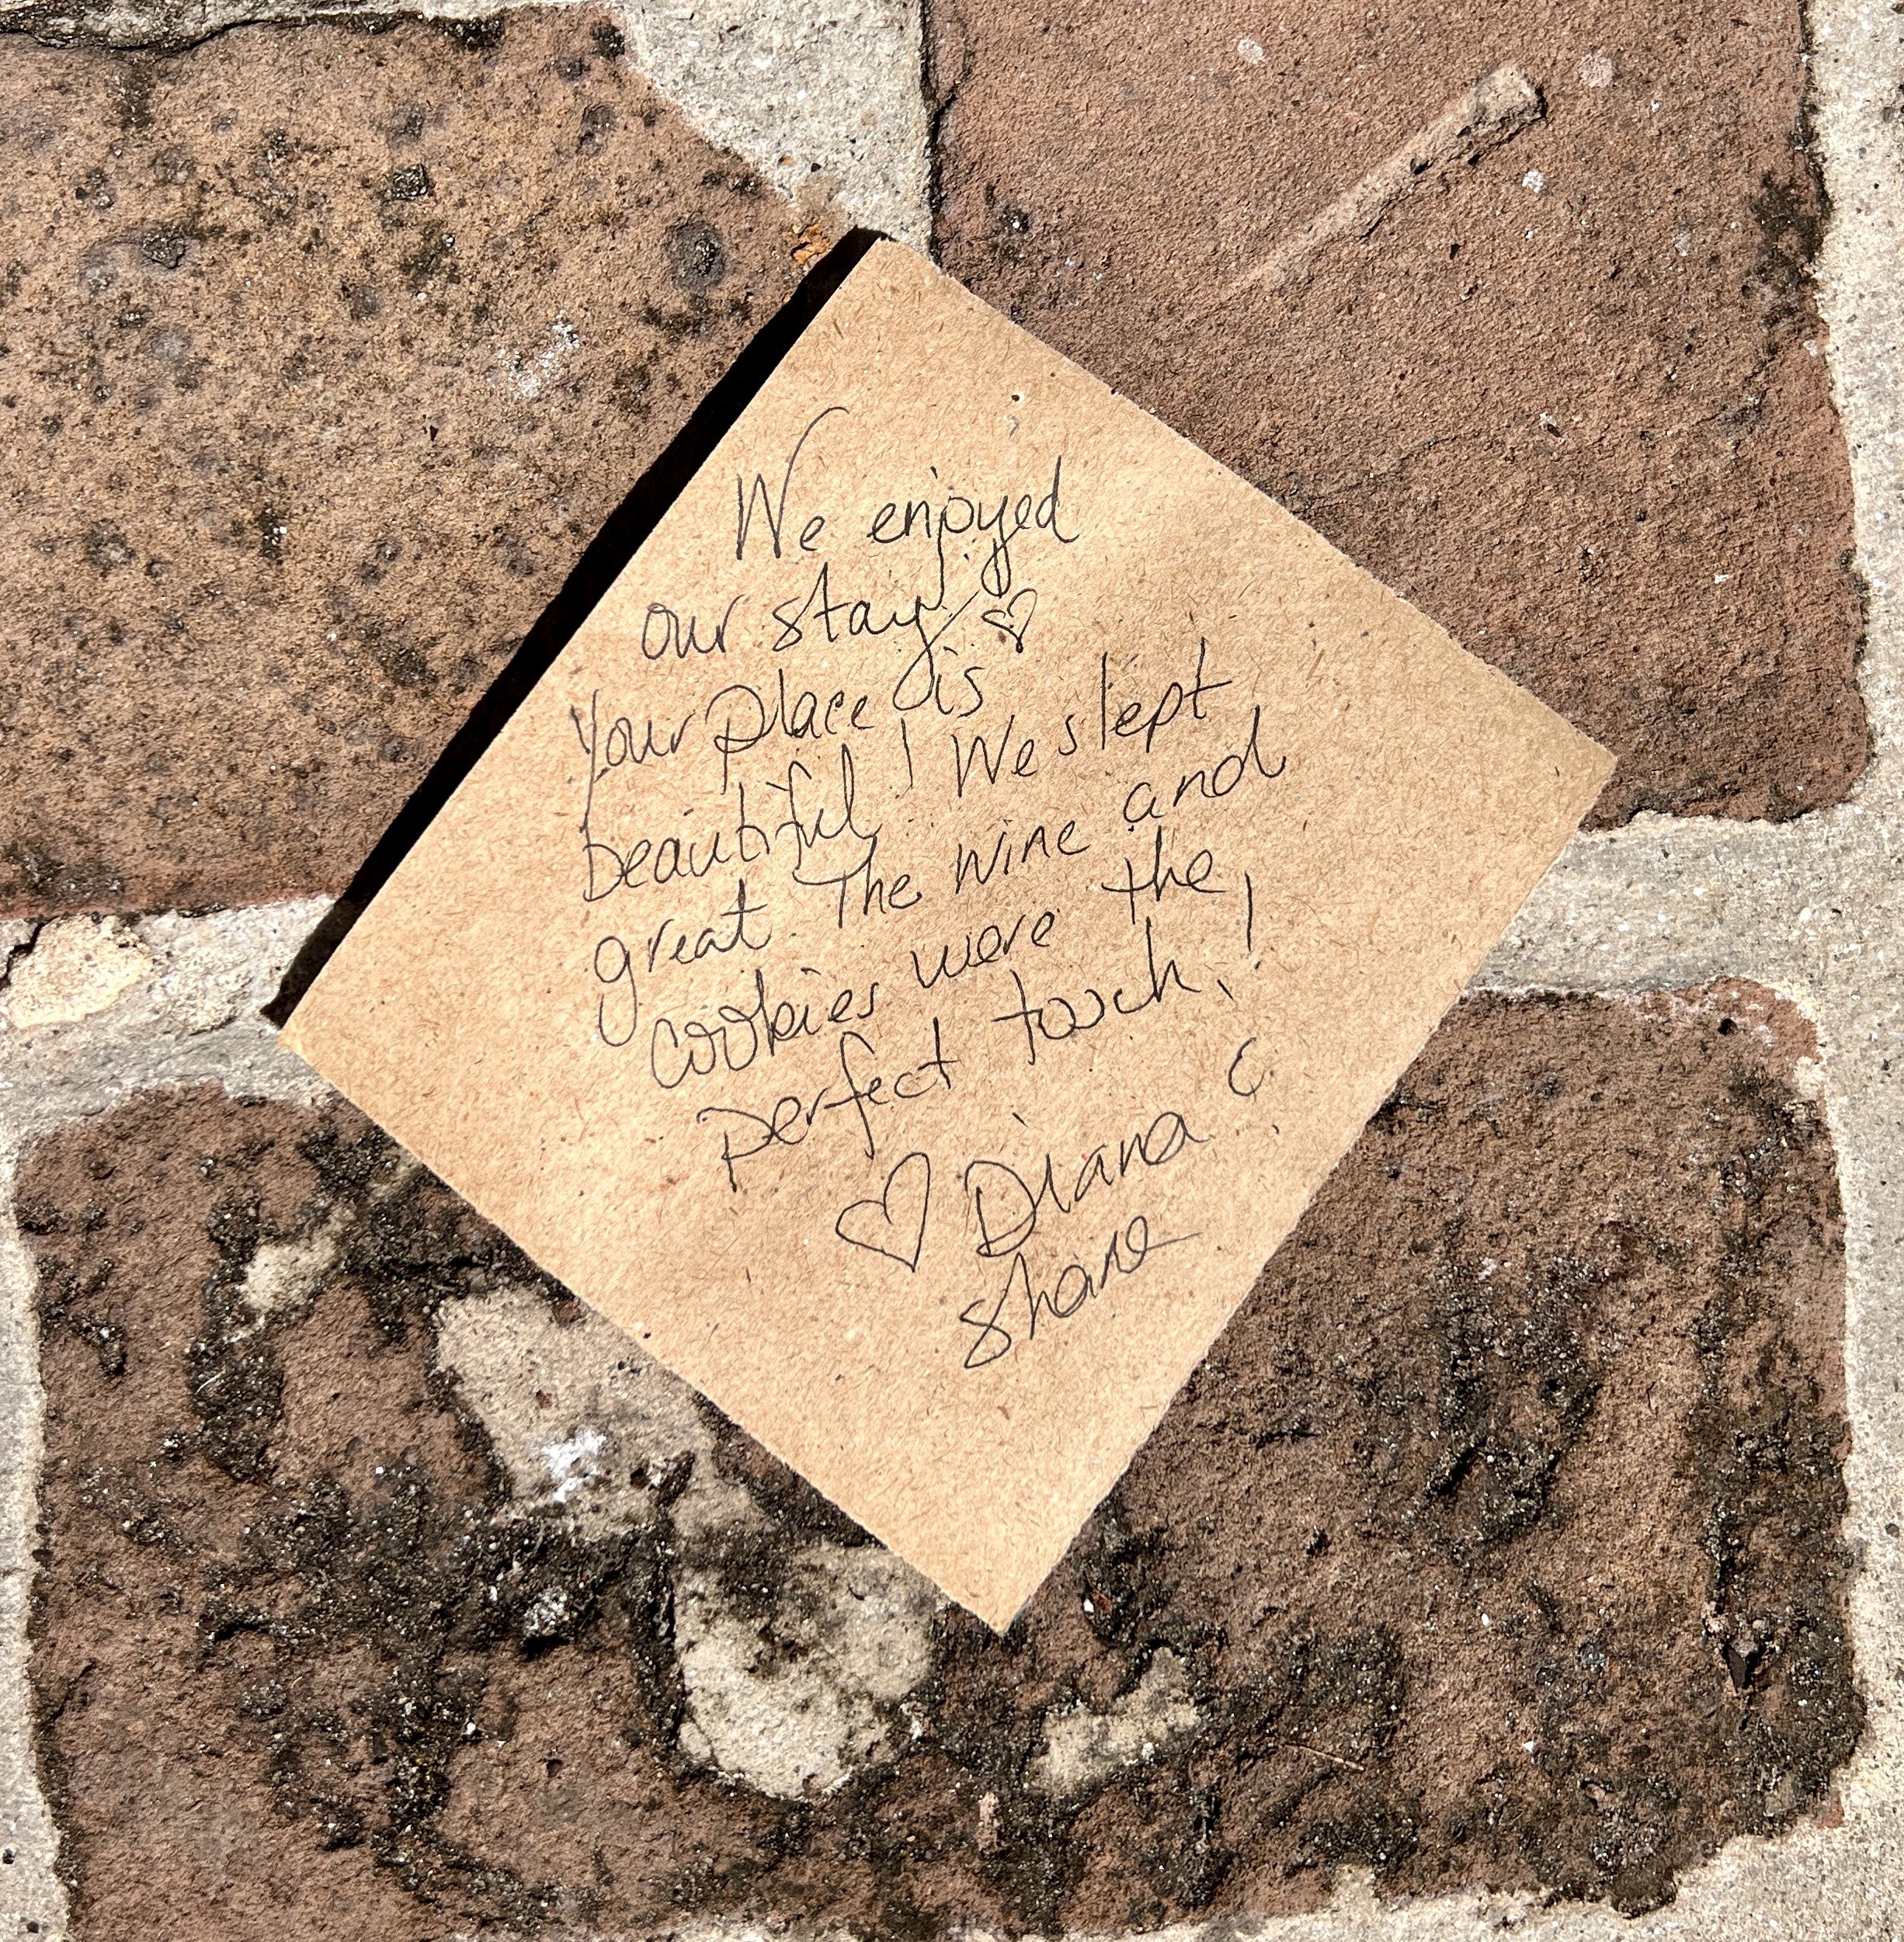 We enjoyed
our stay ♡
Your place is
beautiful! We slept
great. The wine and
cookies were the
perfect touch!
♡ Diana &
Shane